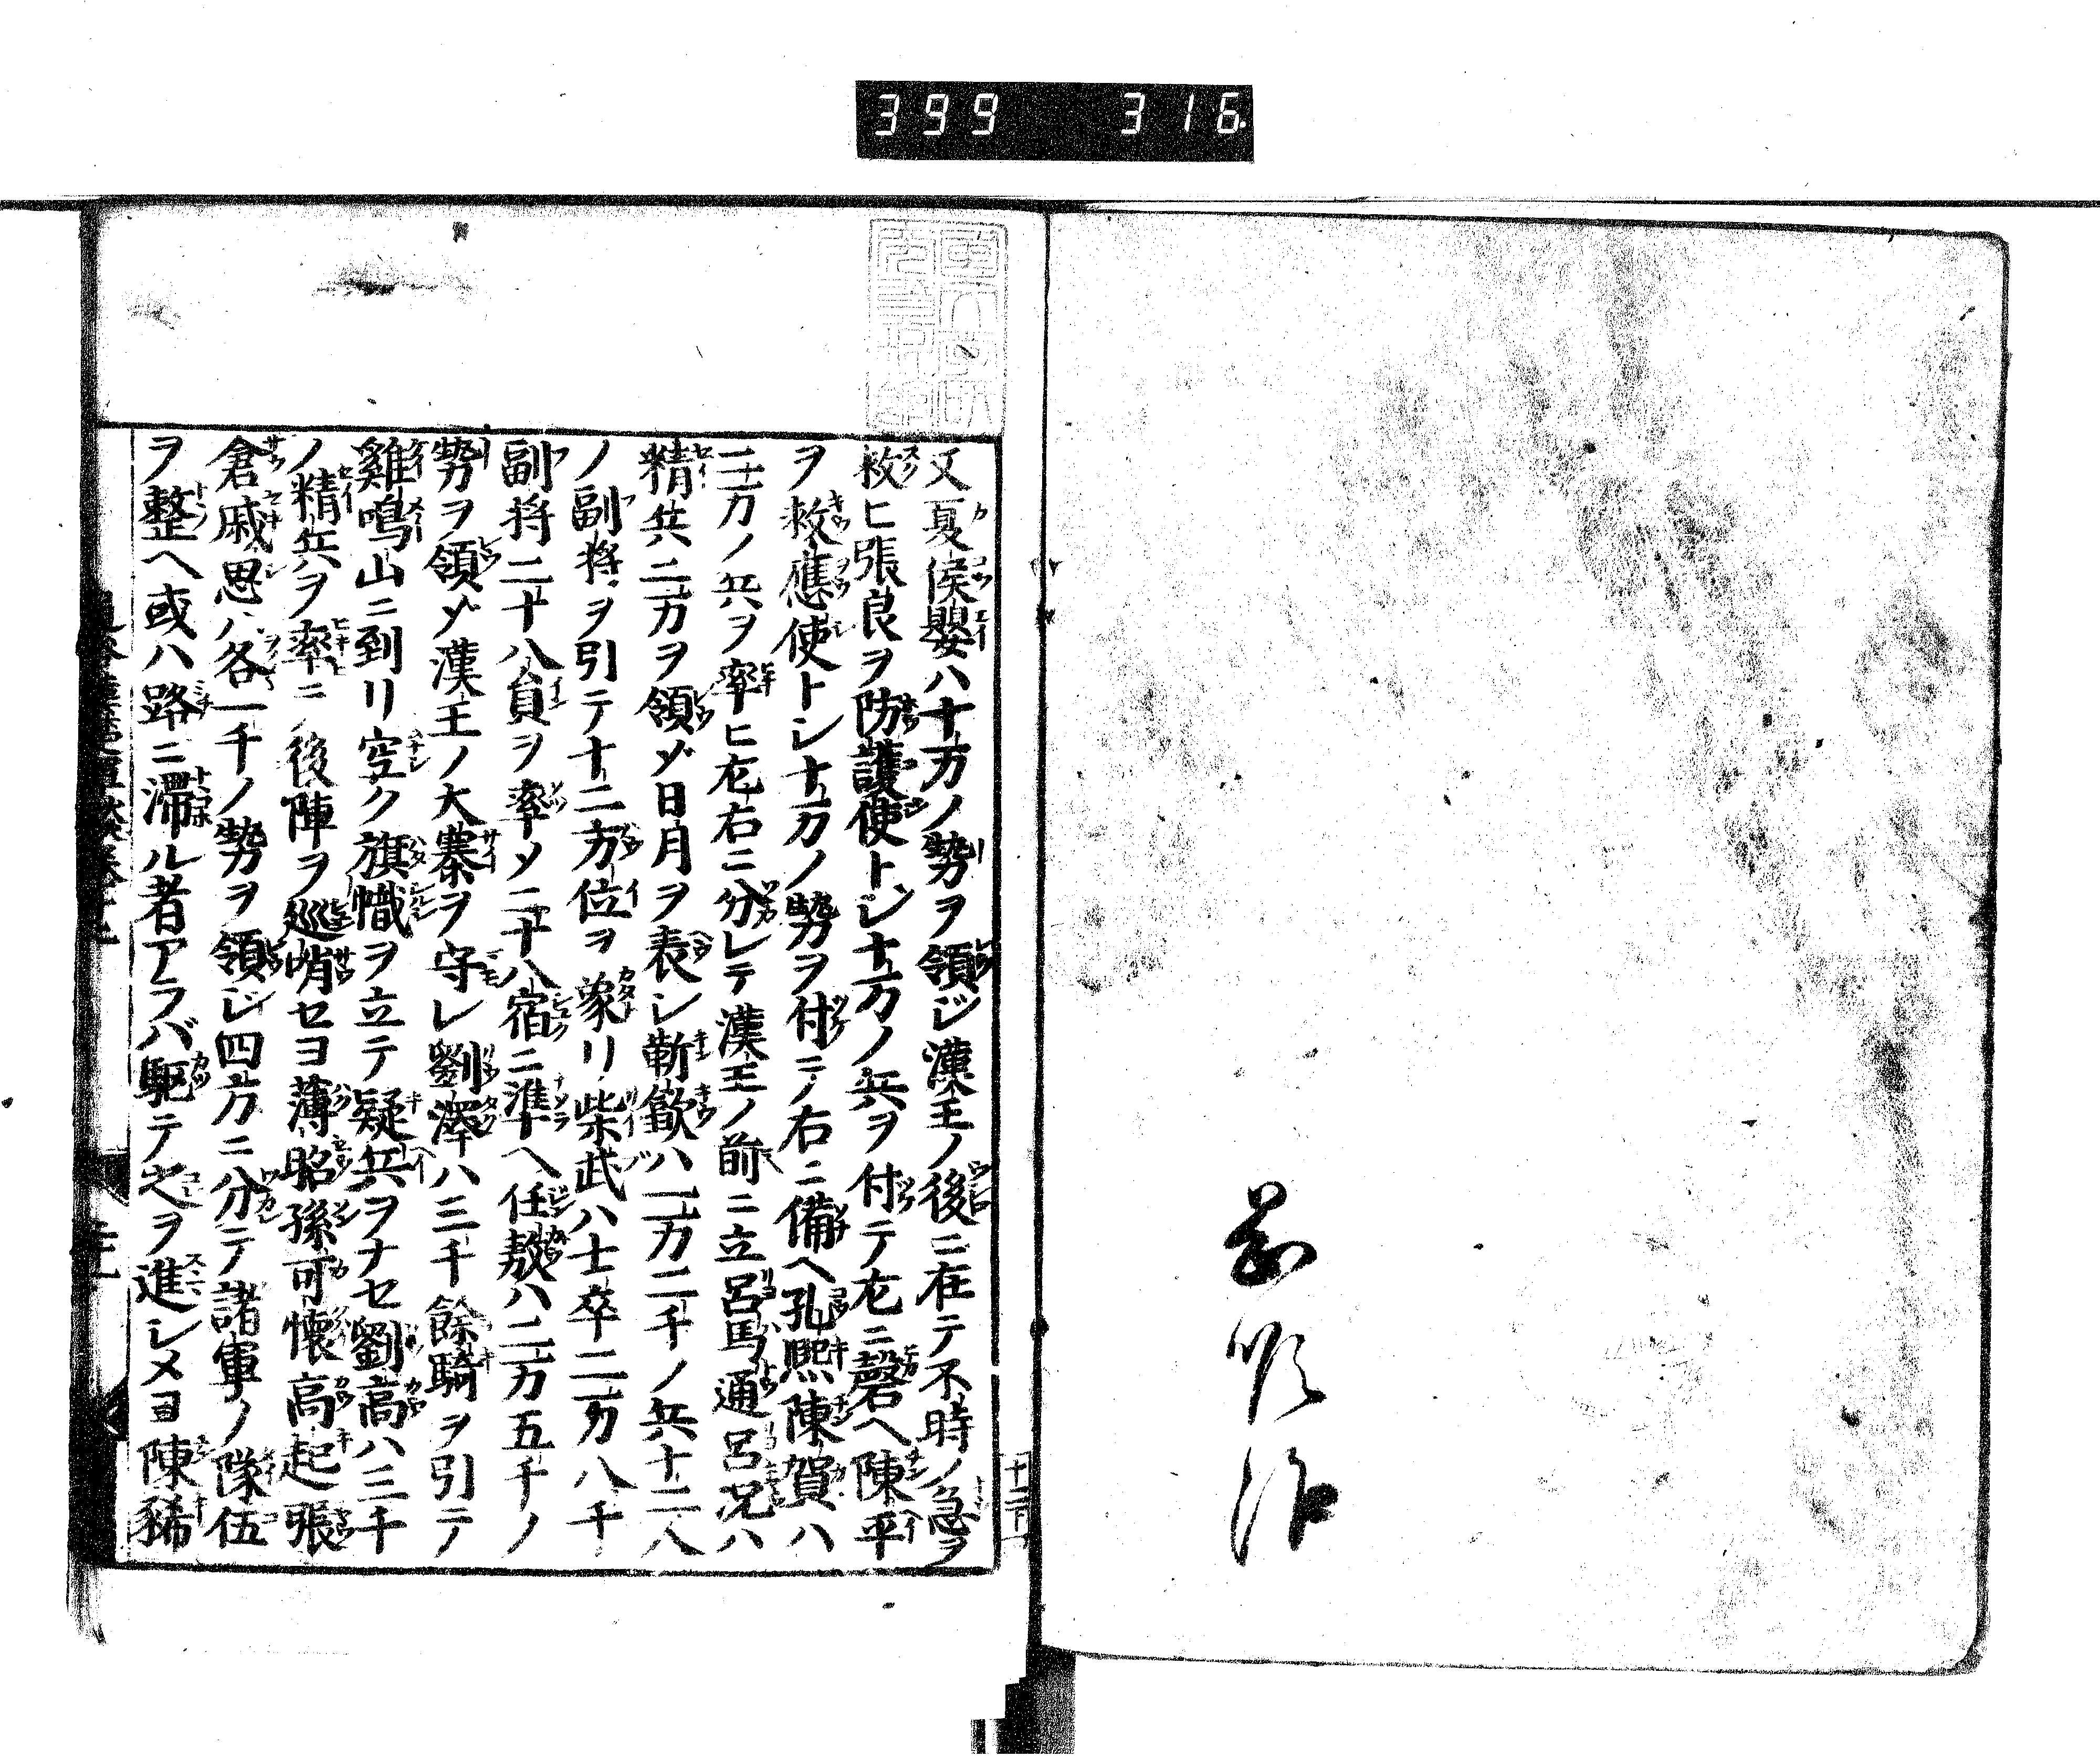 399 316
又夏侯嬰ハ十万ノ勢ヲ領ジ漢王ノ後ニ在テ不時ノ急ヲ
救ヒ張良ヲ防護使トシ十万ノ兵ヲ付テ左ニ磬ヘ陳平
ヲ救應使トシ十万ノ勢ヲ付テ右ニ備ヘ孔熙陳賀ハ
二十万ノ兵ヲ率ヒ左右ニ分レテ漢王ノ前ニ立呂馬通呂况ハ
精兵二万ヲ領メ日月ヲ表シ靳歙ハ一万二千ノ兵十二人
ノ副将ヲ引テ十二方位ヲ象リ柴武ハ士卒二万八千
副将二十八員ヲ率メ二十八宿ニ準ヘ任敖ハ二万五千ノ
勢ヲ領メ漢王ノ大寨ヲ守レ劉澤ハ三千餘騎ヲ引テ
雞鳴山ニ到リ空ク旗幟ヲ立テ疑兵ヲナセ劉高ハ三千
ノ精兵ヲ率ニ後陣ヲ巡哨セヨ薄昭孫可懷高起張
倉戚思ハ各一千ノ勢ヲ領ジ四方ニ分テ諸軍ノ隊伍
ヲ整ヘ或ハ路ニ滞ル者アラバ駆テ之ヲ進シメヨ陳豨